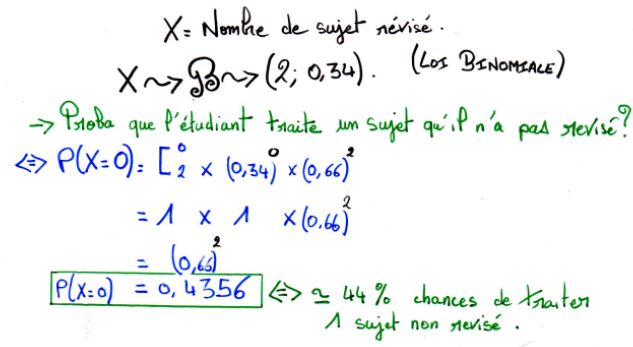 X = Nombre de sujet révisé.
X ~> B ~> (2; 0,34). (LOI BINOMIALE)
-> Proba que l'étudiant traite un sujet qu'il n'a pas revisé?
<=> P(X=0) = C₂⁰ × (0,34)⁰ × (0,66)²
= 1 × 1 × (0.66)²
= (0,66)²
P(X=0) = 0,4356 <=> ≃ 44% chances de traiter
1 sujet non revisé.